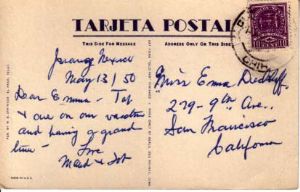 TARJETA POSTAL
THIS SIDE FOR MESSAGE
ADDRESS ONLY ON THIS SIDE
Juarez Mexico
May 13/50
Dear Emma - Tot
& I are on our vacation
and having a grand
time - Love
Maud & Tot
Miss Emma
279-9th Ave.,
San Francisco
California